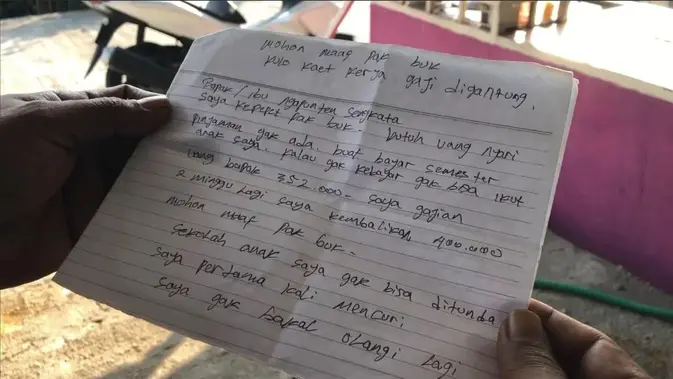 mohon maaf Pak buk
kulo kaet kerja gaji digantung.
Bapak / ibu ngapunten sengkata
saya kepepet Pak buk. butuh uang nyari
pinjaman gak ada, buat bayar semester
anak saya. kalau gak kebayar gak bisa ikut
uang bapak 352.000- saya gajian
2 minggu lagi saya kembalikan 400.000
mohon maaf Pak buk-
sekolah anak saya gak bisa ditunda
saya pertama kali mencuri
saya gak bakal olangi lagi